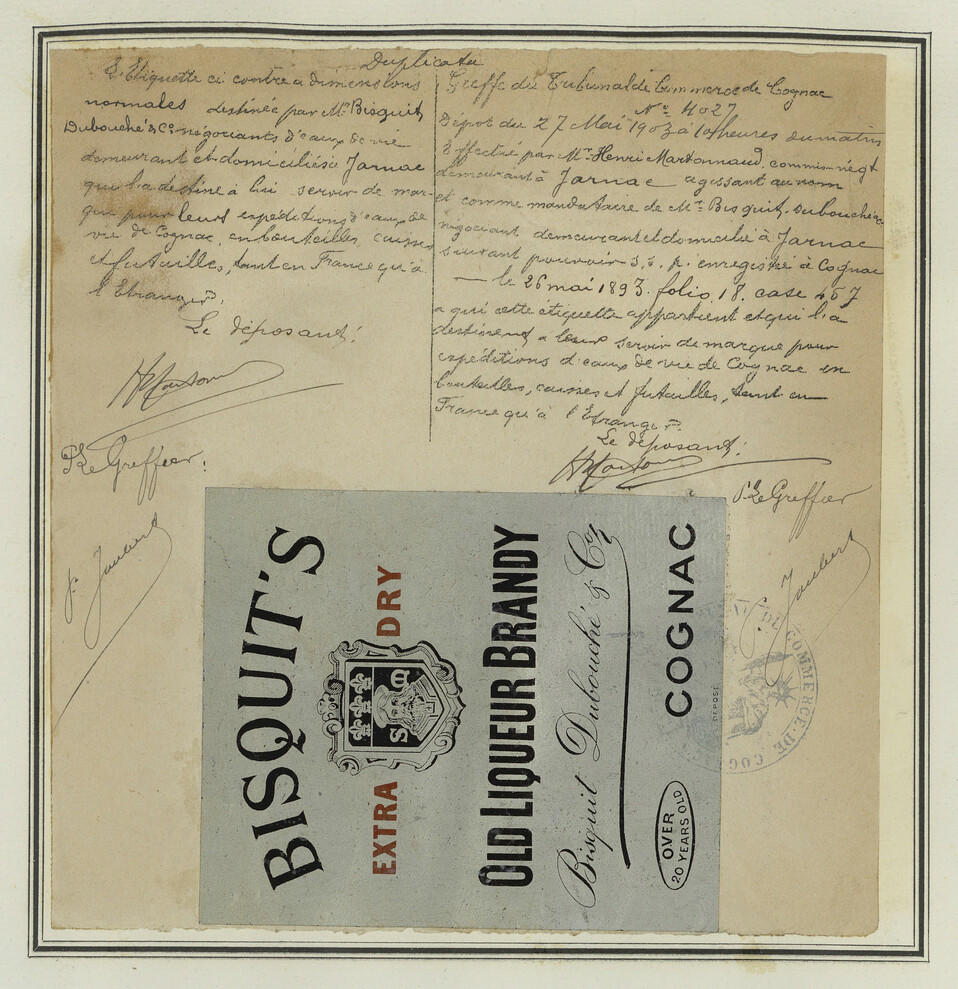 Duplicata
L'Etiquette ci contre a dimensions
normales destinée par Mr. Bisquit
Dubouché & Co négociants d'eaux de vie
demeurant et domiciliés à Jarnac
qui l'a destine à lui servir de mar-
que pour leurs expéditions d'eaux de
vie de Cognac, en bouteilles, caisses
et futailles, tant en France qu'à
l'Etranger.
Le déposant!
Pr Le Greffier.
Joubert
Greffe du Tribunal de Commerce de Cognac
No 4027
Dépot du 27 Mai 1903 à 10 heures du matin
Effectué par Mr Henri Martonnaud, commis négt
demeurant à Jarnac agissant au nom
et comme mandataire de Mr. Bisquit, Dubouché &
négociant demeurant et domicilié à Jarnac
suivant pouvoir s.s.p. enregistré à Cognac
— le 26 mai 1893. folio 18. case 457
a qui cette étiquette appartient et qui l'a
destinent a leur servir de marque pour
expéditions d'eaux de vie de Cognac en
bouteilles, caisses et futailles, tant en
France qu'à l'Etranger.
Le déposant!
Pr Le Greffier
Joubert
BISQUIT'S
EXTRA DRY
OLD LIQUEUR BRANDY
Bisquit Dubouché & Co
COGNAC
DÉPOSÉ
OVER
20 YEARS OLD
DU COMMERCE · DE
COGNAC